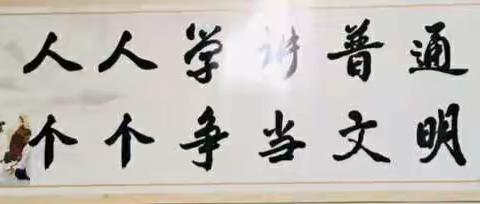 人人学讲普通
个个争当文明